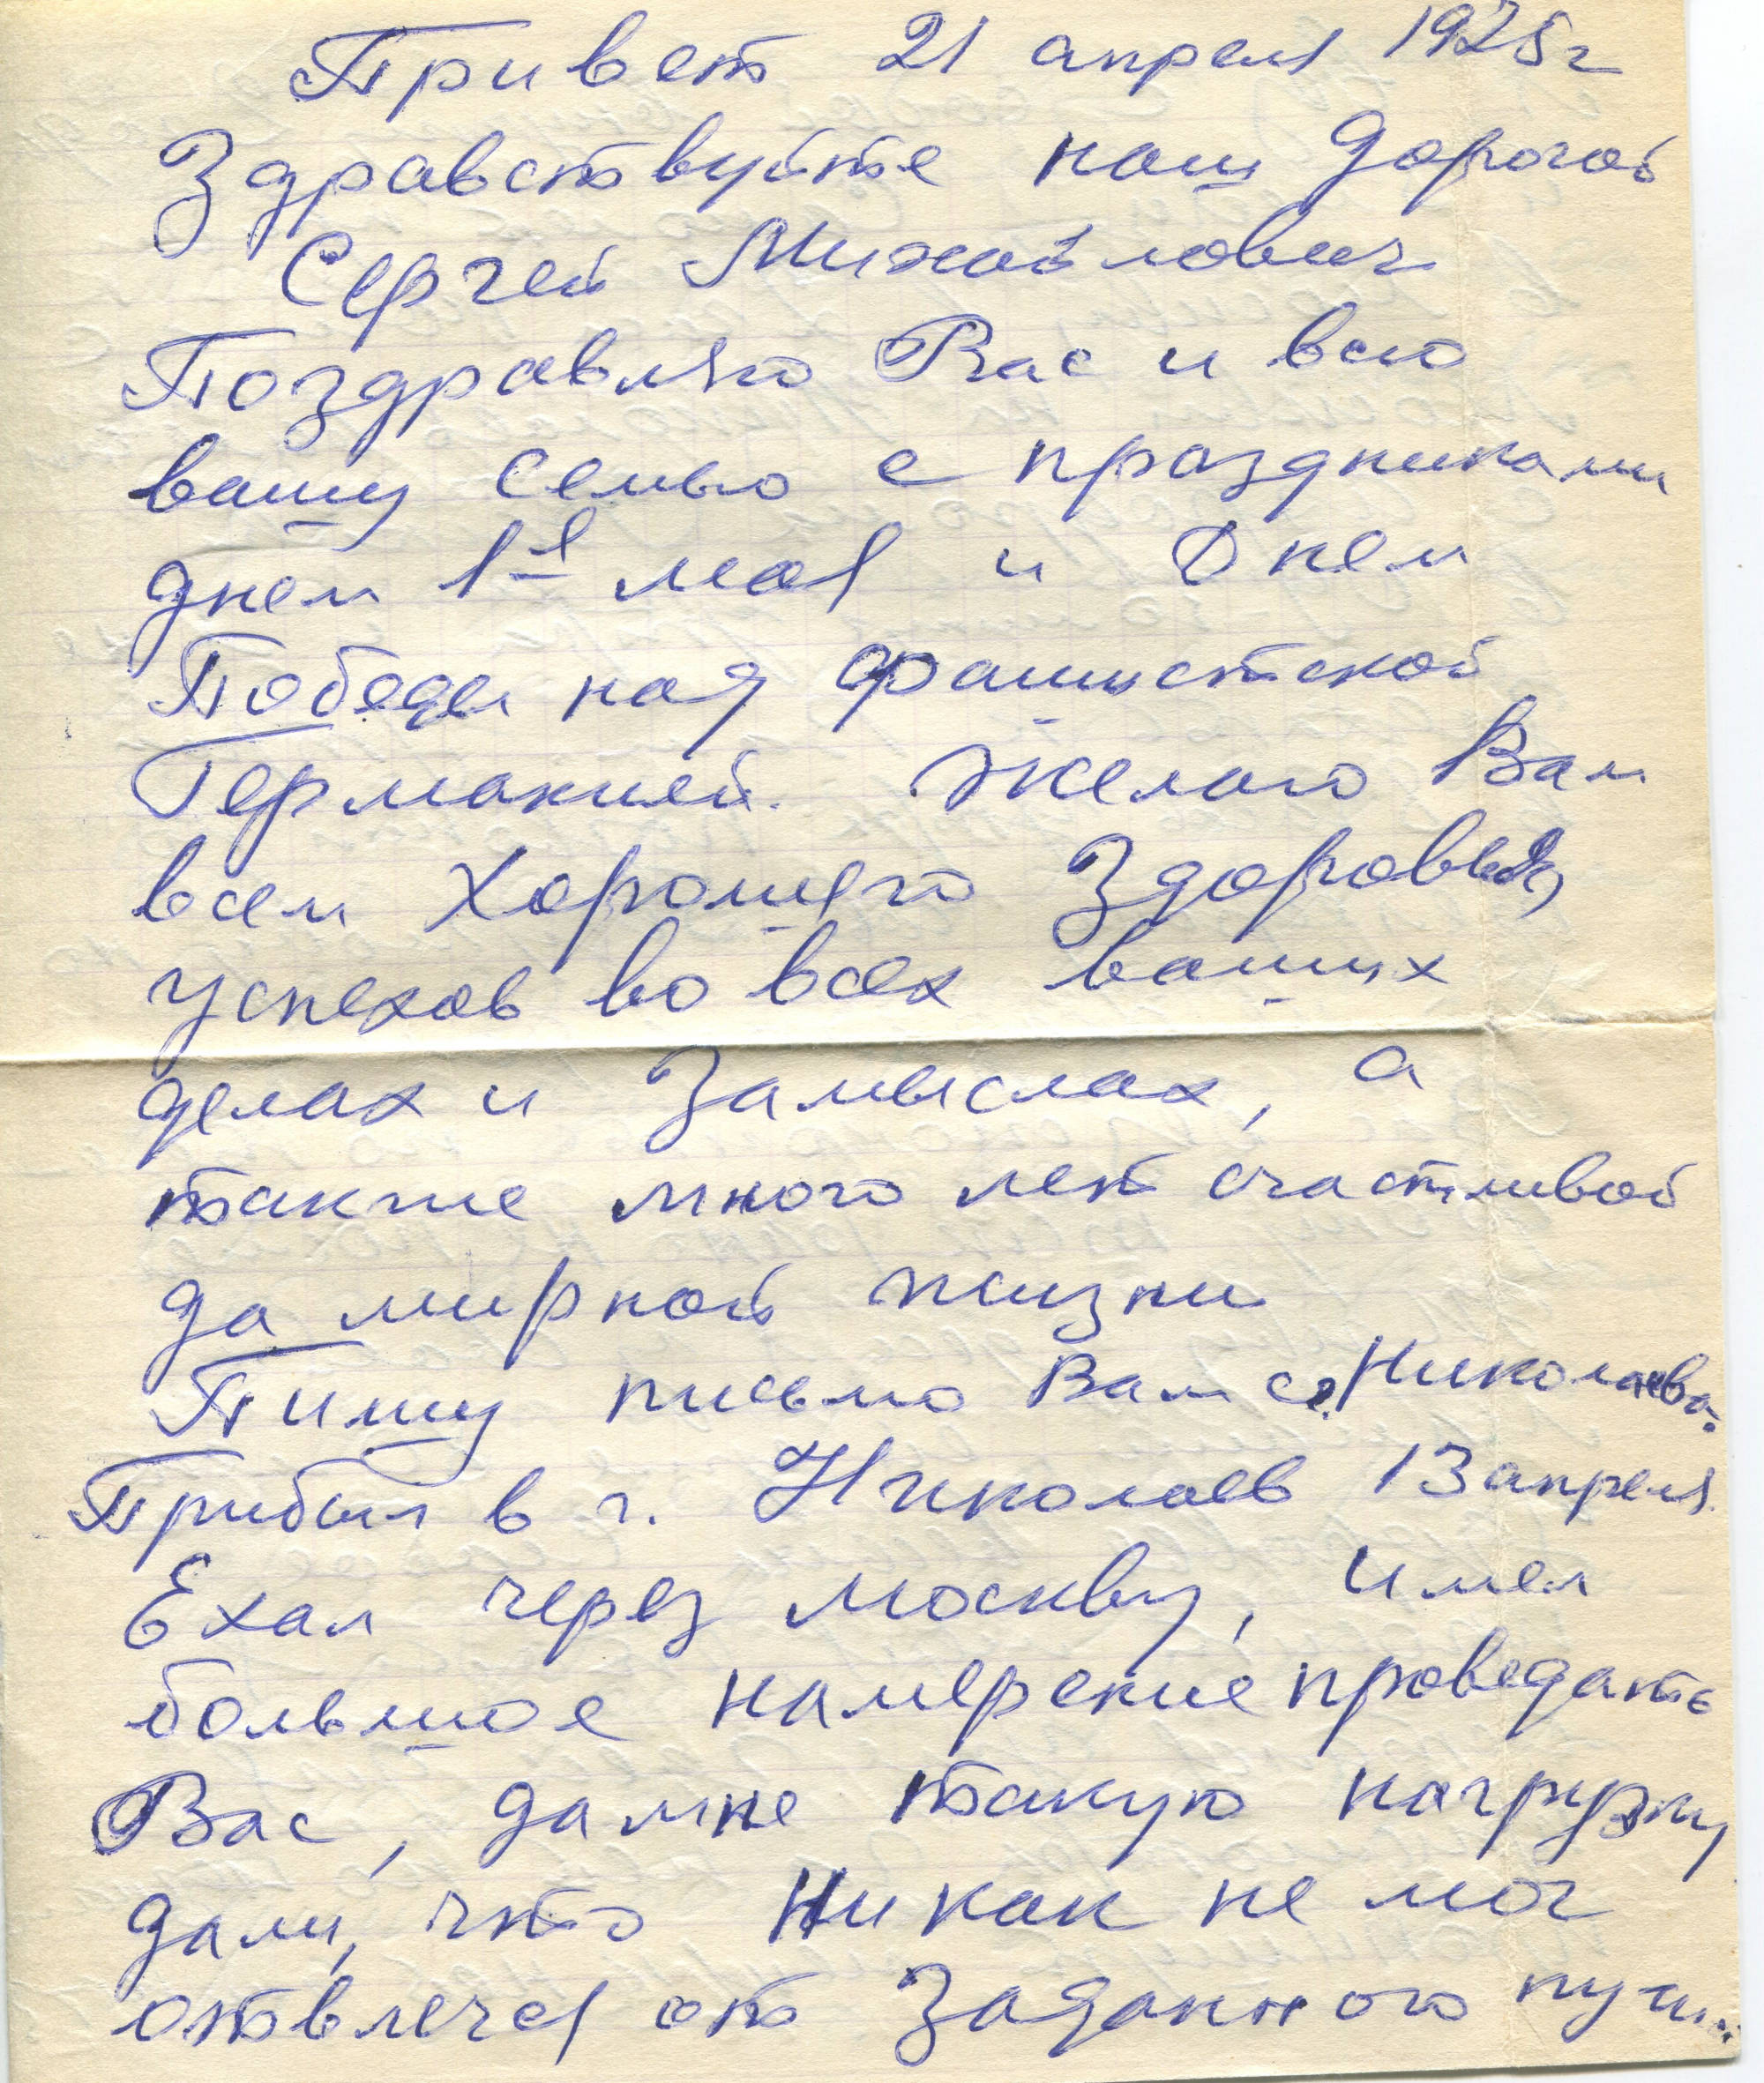 Привет 21 апреля 1975г
Здравствуйте наш дорогой
Сергей Михайлович
Поздравляю Вас и всю
вашу семью с праздниками
днем 1е мая и Днем
Победы над фашистской
Германией. Желаю Вам
всем Хорошего Здоровья,
успехов во всех ваших
делах и Замыслах, а
также много лет счастливой
да мирной жизни
Пишу письмо Вам с г. Николаева.
Прибыл в г. Николаев 13 апреля.
Ехал через москву, имел
большое намерение проведать
Вас, да мне такую нагрузку
дали, что Никак не мог
отвлечся от Заданного пути..